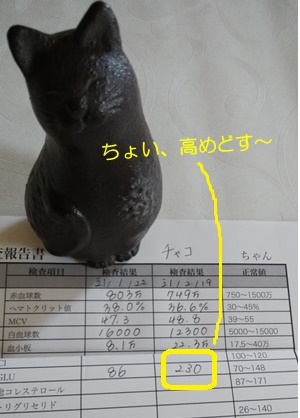 ちょい、高めどす～
査報告書 チャコ ちゃん
検査項目 検査結果 検査結果 正常値
31/1/22 31/2/19
赤血球数 803万 749万 750～1500万
ヘマトクリット値 38.0% 36.6% 30～45%
MCV 47.3 48.8 39～55
白血球数 16000 12300 5000～15000
血小板 8.1万 22.3万 17.5～40万
100～120
GLU 86 230 70～148
コレステロール 87～171
リグリセリド 26～140